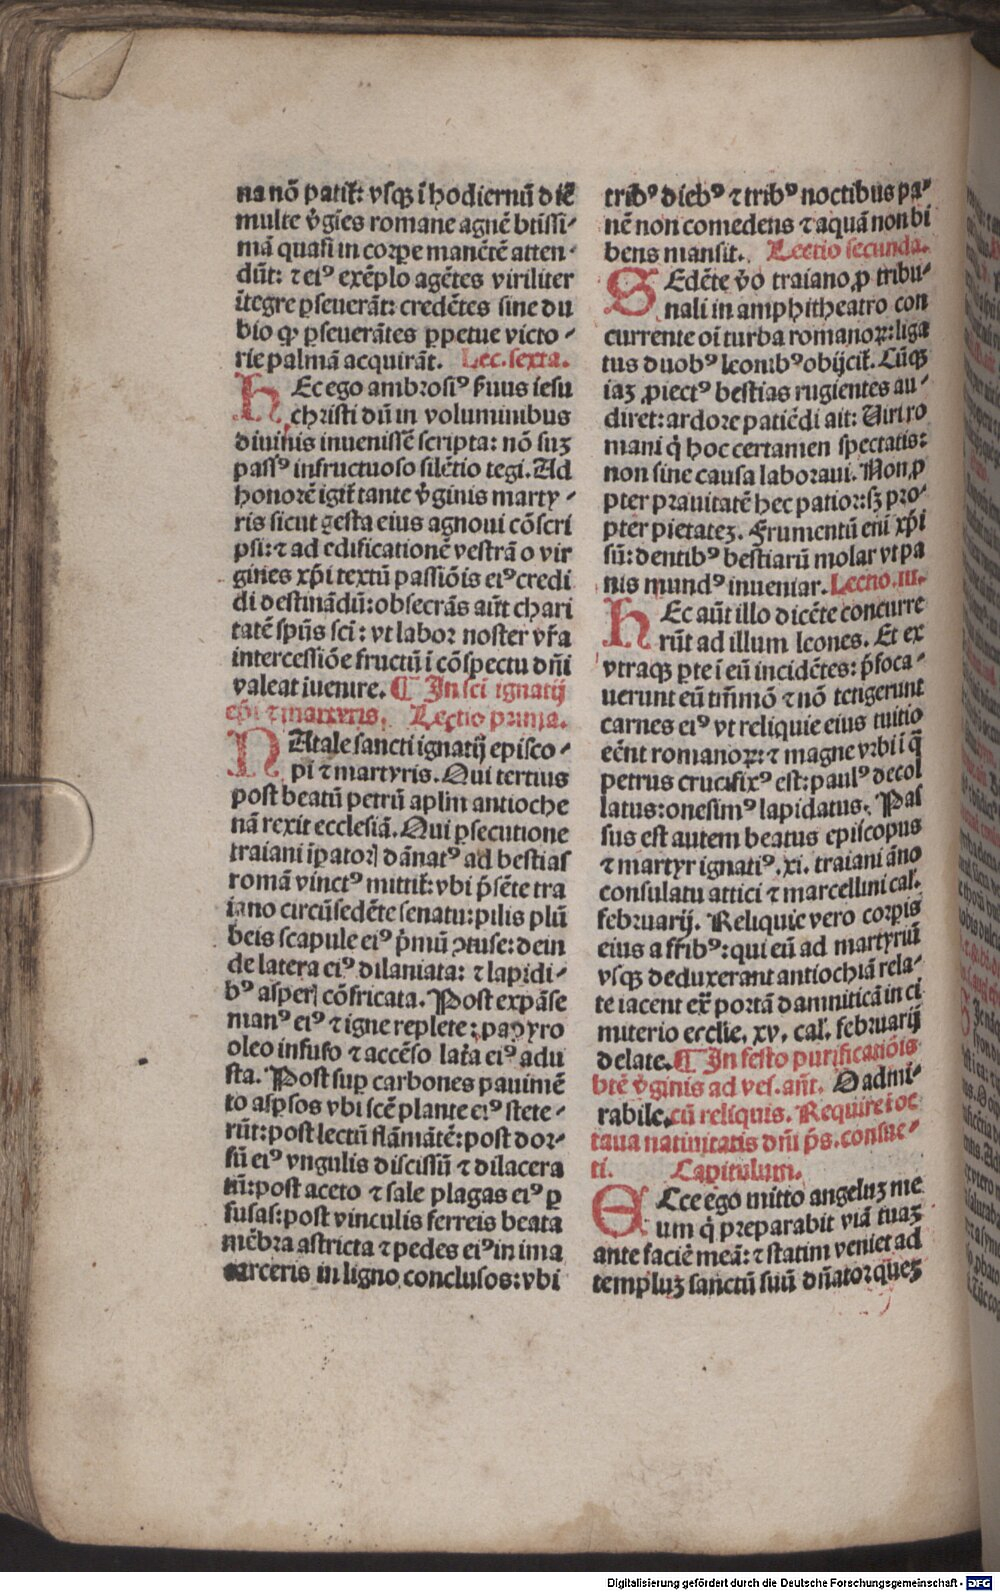 na nō patit᷑: vsqꝫ ī hodiernū diē
multe v̓gīes romane agnē btissi-
mā quasi in corꝑe manētē atten-
dūt: ⁊ eiꝰ exēplo agētes viriliter
ītegre ꝑseuerāt: credētes sine du
bio ꝙ ꝑseuerātes ꝑpetue victo-
rie palmā acquirāt. Lec. sexta.
HEc ego ambrosiꝰ ẜuus iesu
christi dū in voluminibus
diuinis inuenissē scripta: nō suꝫ
passꝰ infructuoso silētio tegi. Ad
honorē igit᷑ tante v̓ginis marty-
ris sicut gesta eius agnoui cōscri
psi: ⁊ ad edificationē vestrā o vir
gines xp̄i textū passiōis eiꝰ credi
di destinādū: obsecrās aūt chari
tatē spūs scī: vt labor noster vr̄a
intercessiōe fructū ī cōspectu dn̄i
valeat īuenire. ¶ In scī ignatij
ep̄i ⁊ martyris. Lectio prima.
NAtale sancti ignatij episco-
pi ⁊ martyris. Qui tertius
post beatū petrū aplm̄ antioche
nā rexit ecclesiā. Qui ꝑsecutione
traiani īꝑatoꝝ dānatꝰ ad bestias
romā vinctꝰ mittit᷑: vbi p̄sēte tra
iano circūsedēte senatu: pilis plū
beis scapule eiꝰ p̄mū ↄtuse: dein
de latera eiꝰ dilaniata: ⁊ lapidi-
bꝰ asperꝭ cōfricata. Post expāse
manꝰ eiꝰ ⁊ igne replete: papyro
oleo infuso ⁊ accēso lat̄a eiꝰ adu
sta. Post suꝑ carbones pauimē
to asꝑsos vbi scē plante eiꝰ stete-
rūt: post lectū flāmātē: post dor-
sū eiꝰ vngulis discissū ⁊ dilacera
tū: post aceto ⁊ sale plagas eiꝰ ꝑ
fusas: post vinculis ferreis beata
mēbra astricta ⁊ pedes eiꝰ in ima
carceris in ligno conclusos: vbi
tribꝰ diebꝰ ⁊ tribꝰ noctibus pa-
nē non comedens ⁊ aquā non bi
bens mansit. Lectio secunda.
SEdēte v̓o traiano ꝓ tribu-
nali in amphitheatro con
currente oī turba romanoꝝ: liga
tus duobꝰ leonibꝰ obijcit᷑. Cūqꝫ
iaꝫ ꝓiectꝰ bestias rugientes au-
diret: ardore patiēdi ait: Uiri ro
mani q̄ hoc certamen spectatis:
non sine causa laboraui. Non ꝓ
pter prauitatē hec patior: sꝫ pro-
pter pietateꝫ. Frumentū eni xp̄i
sū: dentibꝰ bestiarū molar vt pa
nis mundꝰ inueniar. Lectio. iii.
HEc aūt illo dicēte concurre
rūt ad illum leones. Et ex
vtraqꝫ ꝑte ī eū incidētes: p̄foca-
uerunt eū tm̄mō ⁊ nō tetigerunt
carnes eiꝰ vt reliquie eius tuitio
eēnt romanoꝝ: ⁊ magne vrbi ī q̄
petrus crucifixꝰ est: paulꝰ decol
latus: onesimꝰ lapidatus. Pas
sus est autem beatus episcopus
⁊ martyr ignatiꝰ. xi. traiani āno
consulatu attici ⁊ marcellini cal̄.
februarij. Reliquie vero corꝑis
eius a fr̄ibꝰ: qui eū ad martyriū
vsqꝫ deduxerant antiochiā rela-
te iacent ex̄ portā damniticā in ci
miterio ecclie. xv. cal̄. februarij
delate. ¶ In festo purificatiōis
btē v̓ginis ad ves. an̄t. O admi-
rabile. cū reliquis. Require ī oc
taua natiuitatis dn̄i p̄s. consue-
ti. Capitulum.
ECce ego mitto angeluꝫ me
um q̄ preparabit viā tuaꝫ
ante faciē meā: ⁊ statim veniet ad
templuꝫ sanctū suū dn̄ator quēꝫ
Digitalisierung gefördert durch die Deutsche Forschungsgemeinschaft - DFG